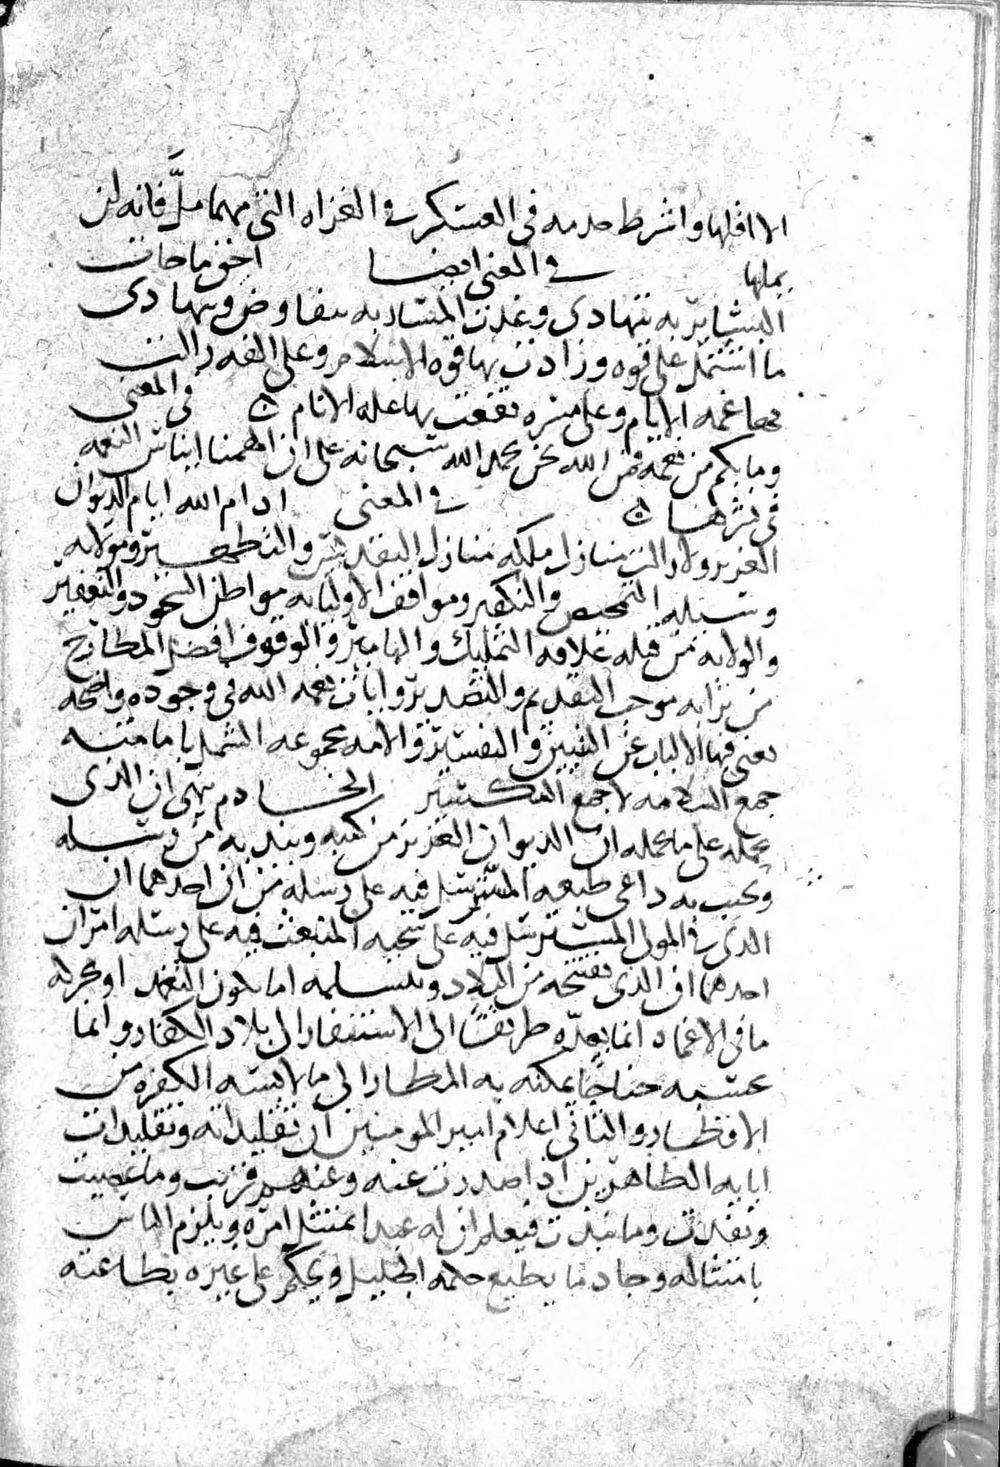 الا اقلها واشرط خدمه في العسكر في الغزاه التي مهما ملَّ فانه لن
يملها في المعنى ايضا احق ما جات
البشاير به تتهادى وغدت المسار به تتفاوض وتتهادى
ما اشتمل على قوه وزادت بها قوه الاسلام وعلى الفه زالت
بها غمه الايام وعلى ميره نقعت بها غله الانام في المعنى
وما بكم من نعمه فمن الله نحن نحمد الله سبحانه على ان الهمنا ايناس النعمه
في نشرها في المعنى ادام الله ايام الديوان
العزيز ولا زالت منازل ملكه منازل التقديس والتطهير وموالاته
وسيله التمحيص والتكفير ومواقف الاوليا به مواطن السجود والتعفير
والولايه من قبله علامه التمليك والتامير والوقوف افضل المطارح
من ترابه موجب التقديم والتصدير وايات نعمه الله في وجوده واضحه
تغنى فيها الالباب عن التبيين والتفسير والامه مجموعه الشمل بامامته
جمع السلامه لا جمع التكسير الخادم ينهي ان الذي
يحمله على ما يحمله الى الديوان العزيز من كتبه ويندبه من رسله
ويجيب به داعي طبعه المسترسل فيه على رسله من ان احدهما ان
الذي في القول المسترسل فيه على سجيه المنبعث فيه على رسله امران
احدهما ان الذي يفتتحه من البلاد ويتسلمه اما بسكون التغمد او بحركه
ما في الاغماد انما يعدّه طريقا الى الاستنفار الى بلاد الكفار وانما
يحسبه جناحا يمكنه به المطار الى ما لابسته الكفره من
الاقطار والثاني اعلام امير المومنين ان تقليداته وتقليدات
ابايه الطاهرين اذا صدرت عنه وعنهم قربت وما عصيت
ونفذت وما نبذت فيعلم ان له عبدا يمتثل امره ويلزم الناس
بامتثاله وجادما يطيع حكمه الجليل ويحكم على غيره بطاعته